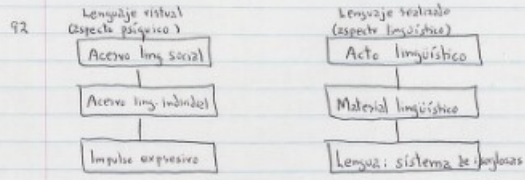 92
Lenguaje virtual
(aspecto psíquico)
Acervo ling social
Acervo ling. individel
Impulso expresivo
Lenguaje realizado
(aspecto lingüístico)
Acto lingüístico
Material lingüístico
Lengua: sistema de isoglosas